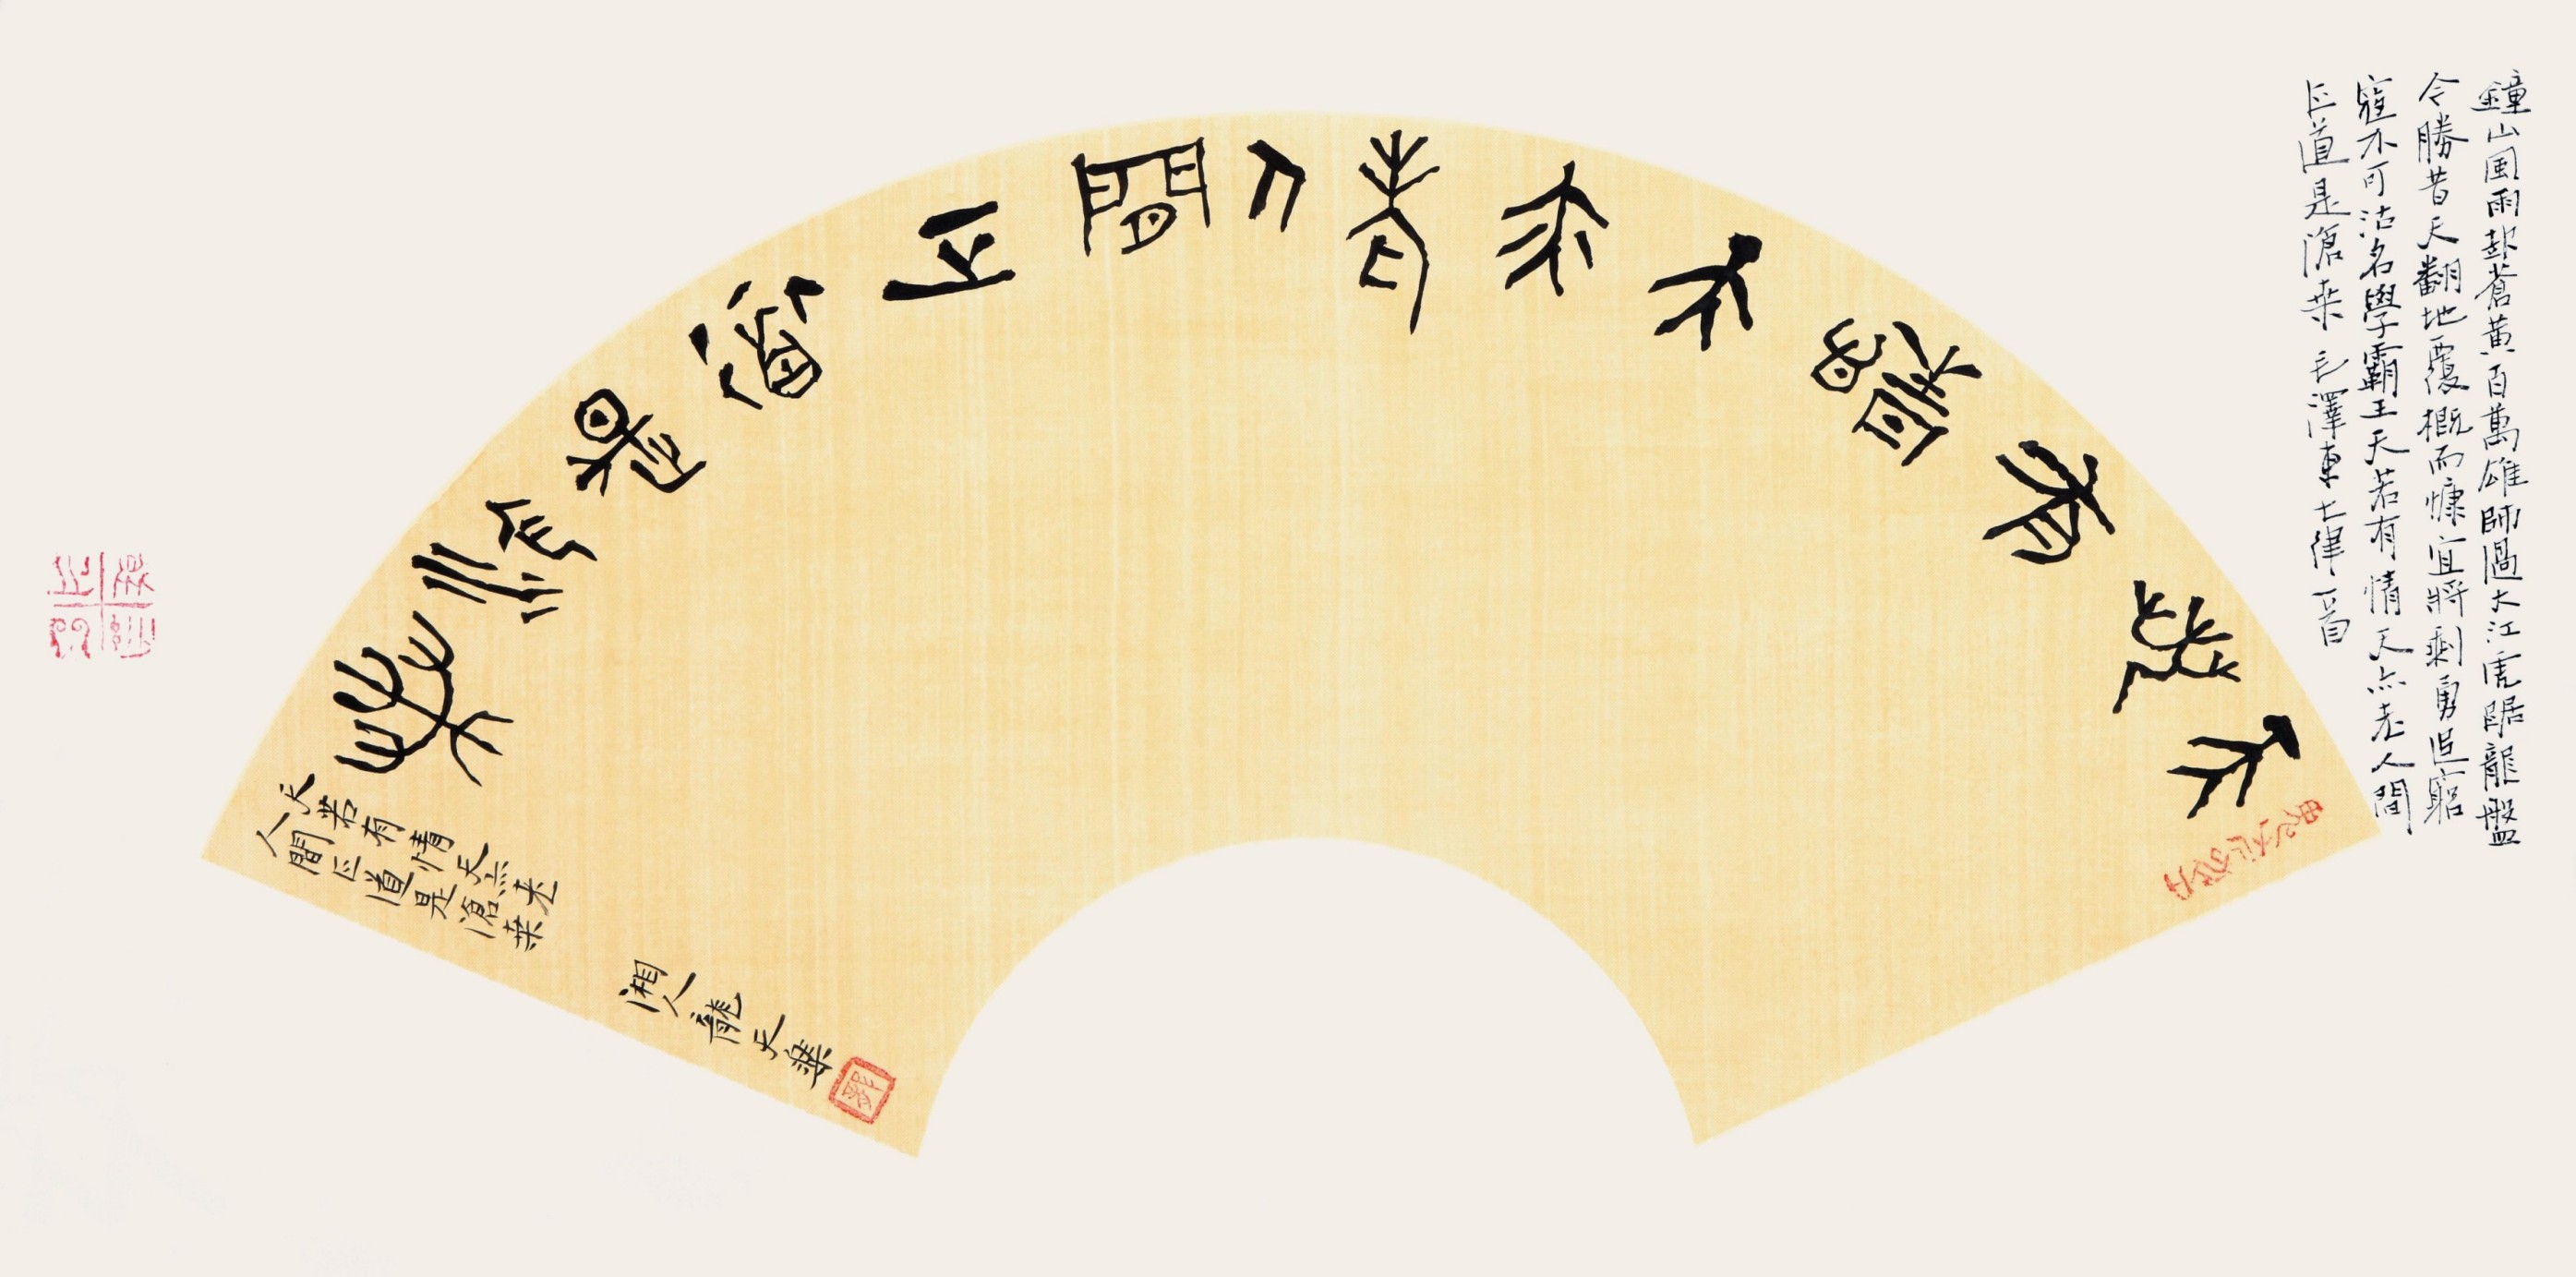 鐘山風雨起蒼黃百萬雄師過大江虎踞龍盤
今勝昔天翻地覆概而慷宜將剩勇追窮
寇不可沽名學霸王天若有情天亦老人間
正道是滄桑 毛澤東七律一首
天若有情天亦老人間正道是滄桑
天若有情天亦老
人間正道是滄桑
湘人龍天